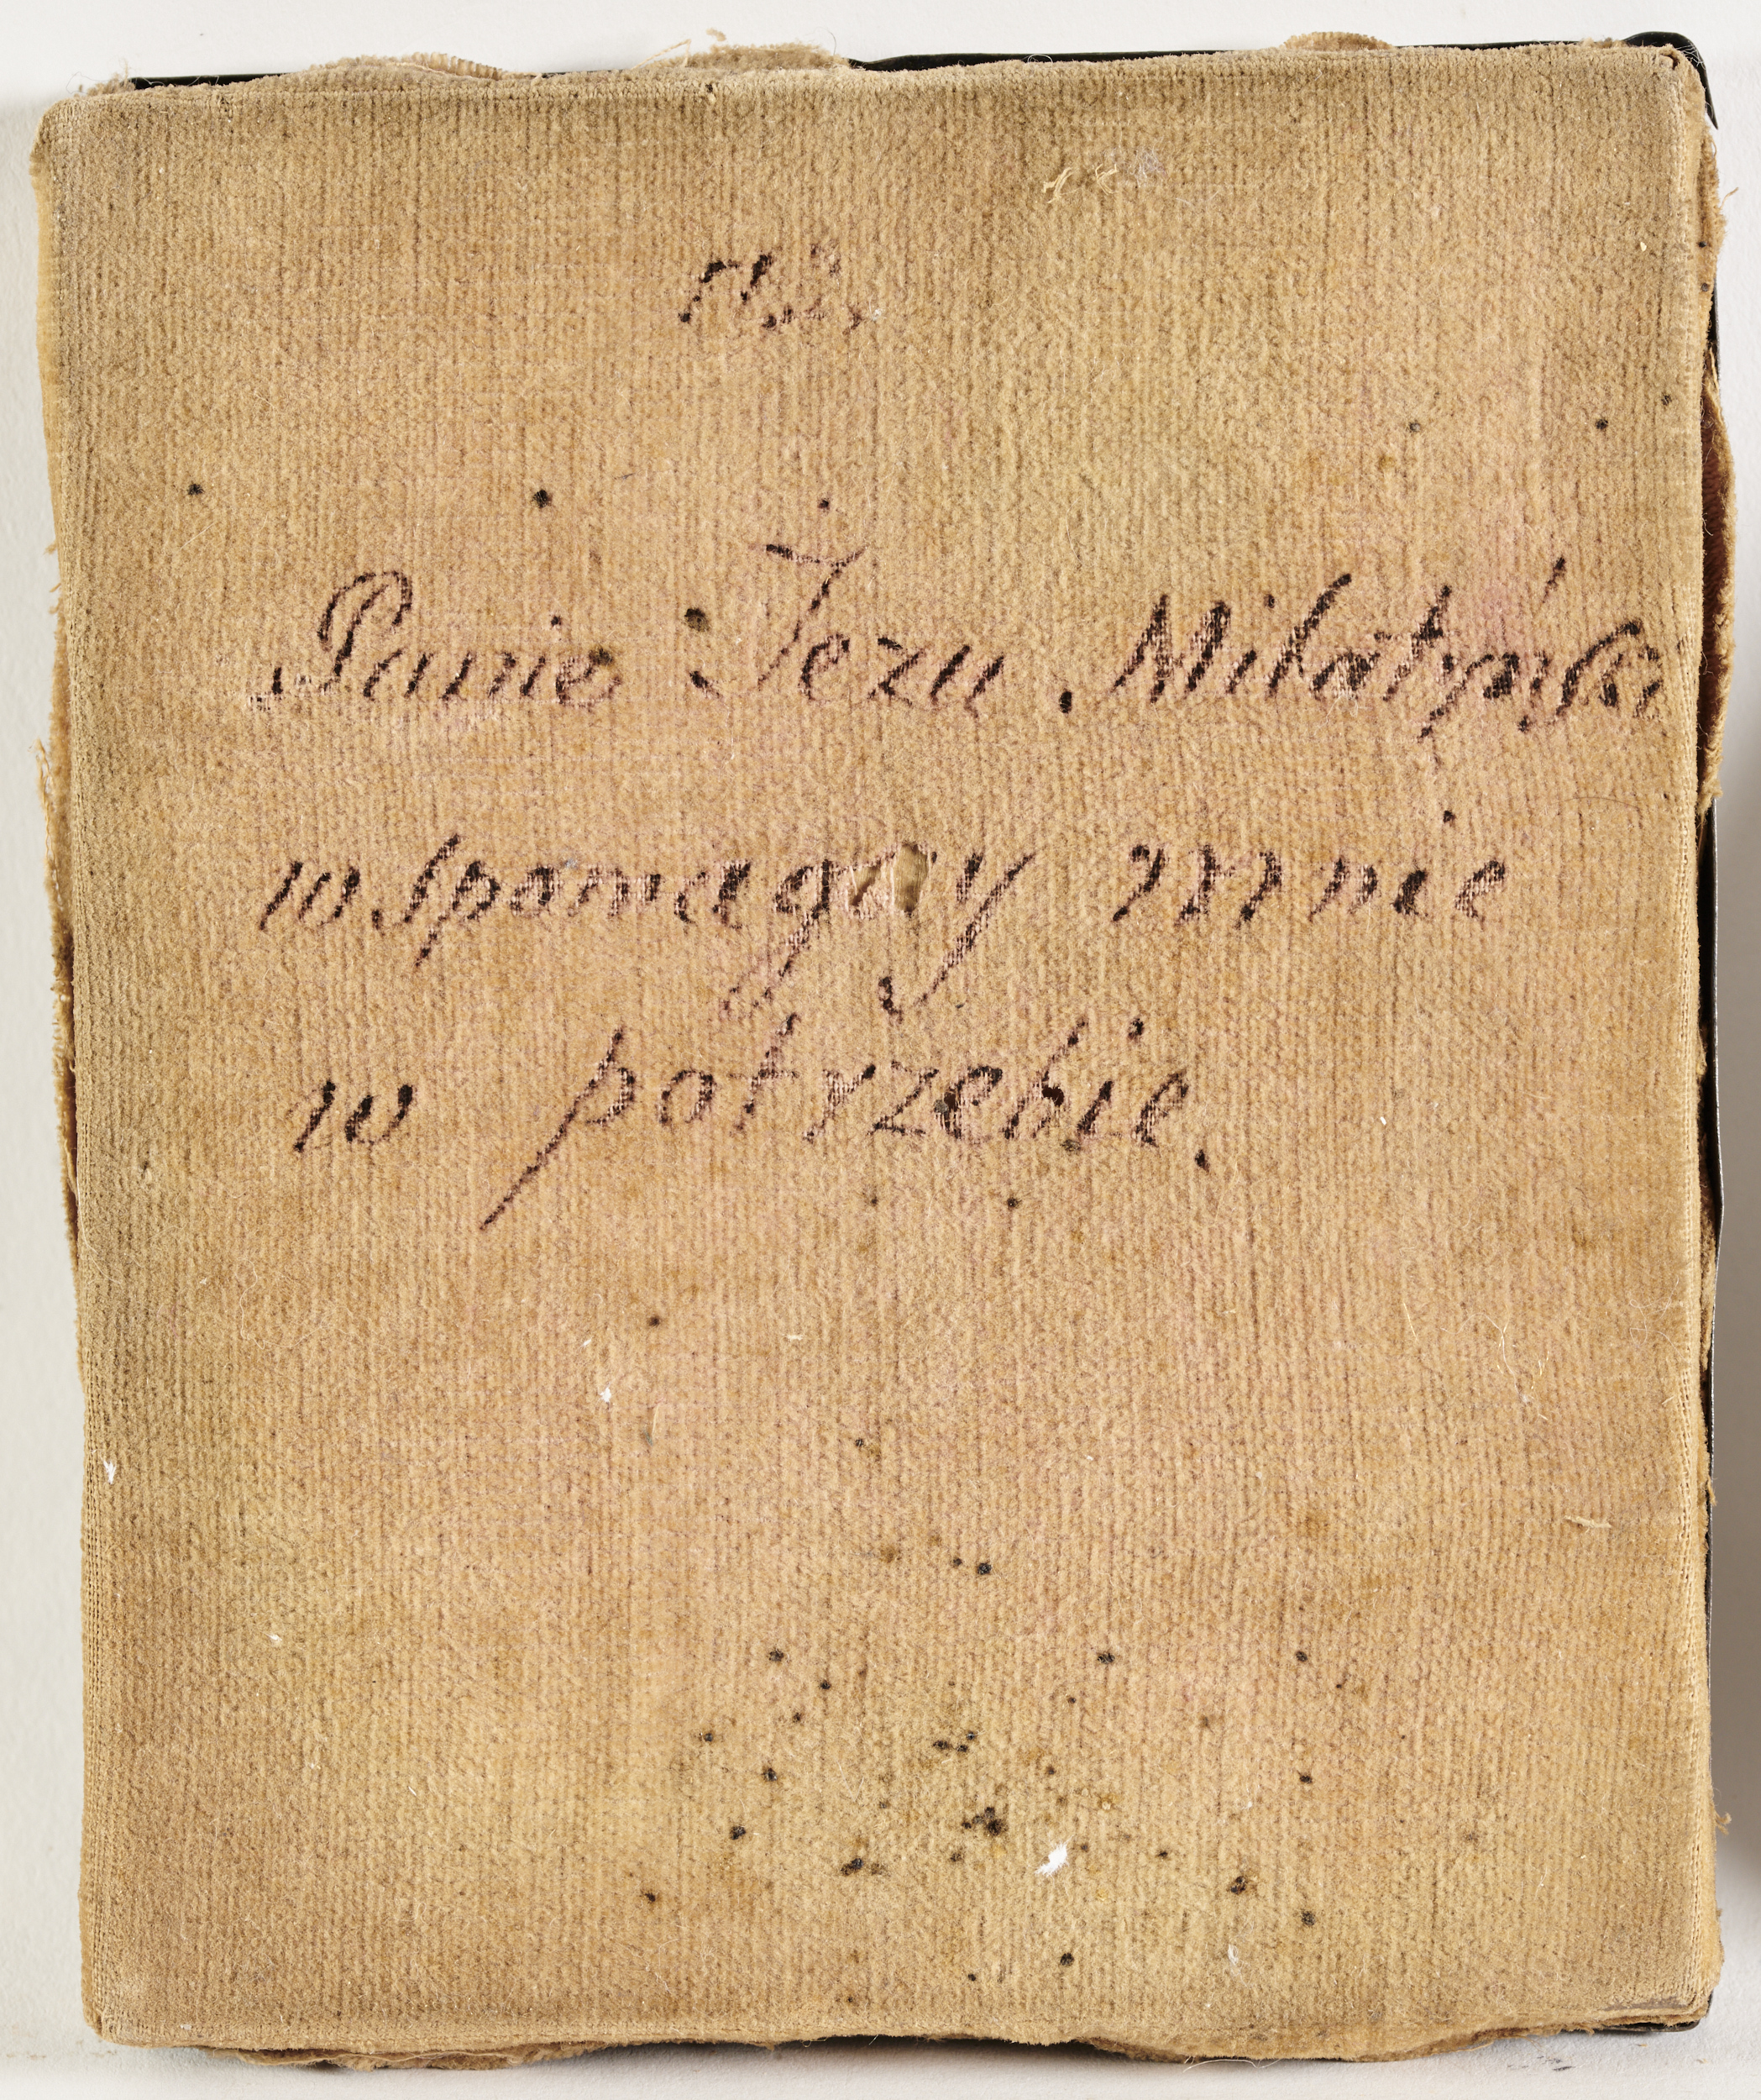 Panie Jezu Milatyński
wspomagay mnie
w potrzebie.